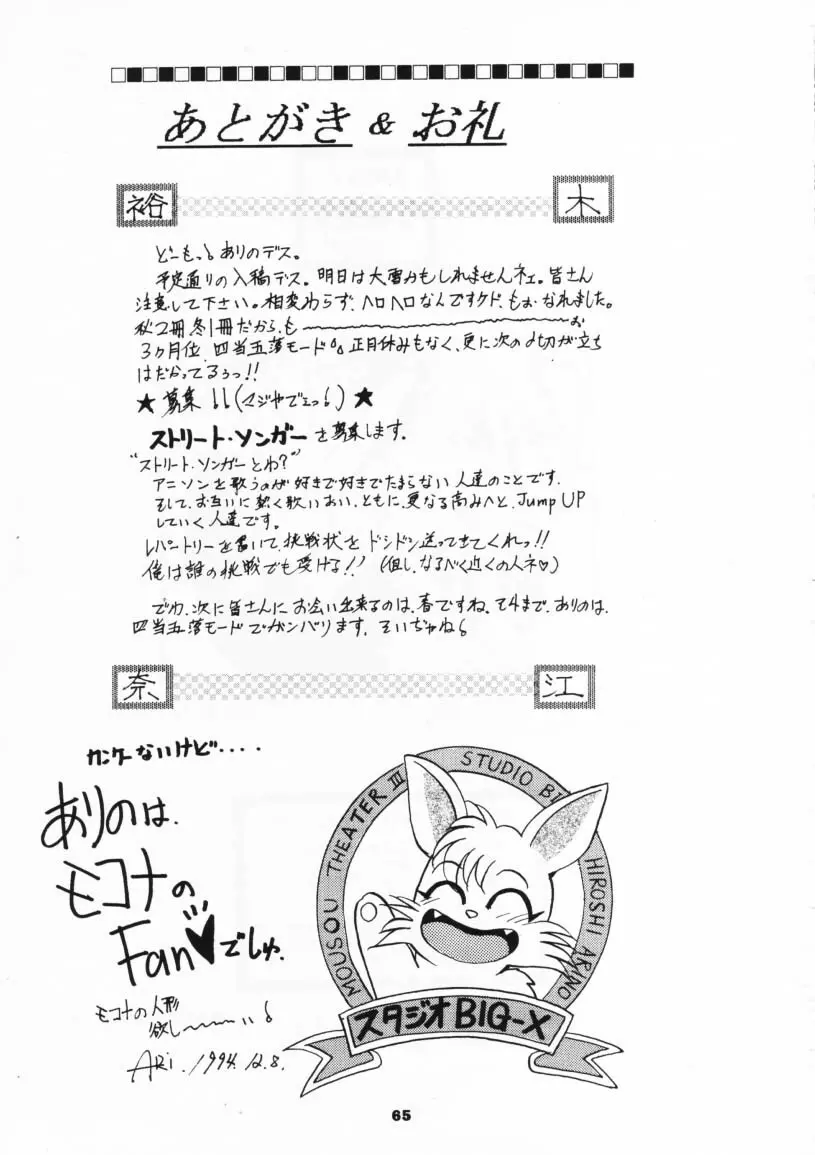 あとがき & お礼
裕 木
どーもっ! ありのデス。
予定通りの入稿デス。明日は大雪かもしれませんネェ。皆さん
注意して下さい。相変わらず、ヘロヘロなんですケド、もぉ なれました。
秋2冊 冬1冊だから、も〜〜〜〜〜お
3ヶ月位、四当五落モード。正月休みもなく、更に次の〆切が立ち
はだかってるぅっ!!
★ 募集!!(マジやでェっ!) ★
ストリート・ソンガーを募集します。
“ストリート・ソンガーとわ?”
アニソンを歌うのが好きで好きでたまらない人達のことです。
そして、お互いに熱く歌いあい、ともに、更なる高みへと、Jump UP
していく人達です。
レパートリーを書いて、挑戦状をドシドシ送ってきてくれっ!!
俺は誰の挑戦でも受ける!! (但し、なるべく近くの人ネ♡)
でわ、次に皆さんにお会い出来るのは、春ですね。それまで、ありのは、
四当五落モードでガンバリます。そいぢゃね!
奈 江
カンケーないけど・・・・
ありのは、
モコナの
Fan♥でしゅ。
モコナの人形
欲し〜〜〜い!
ARi. 1994. 12. 8.
MOUSOU THEATER III STUDIO BI HIROSHI ARINO
スタジオBIG-X
65